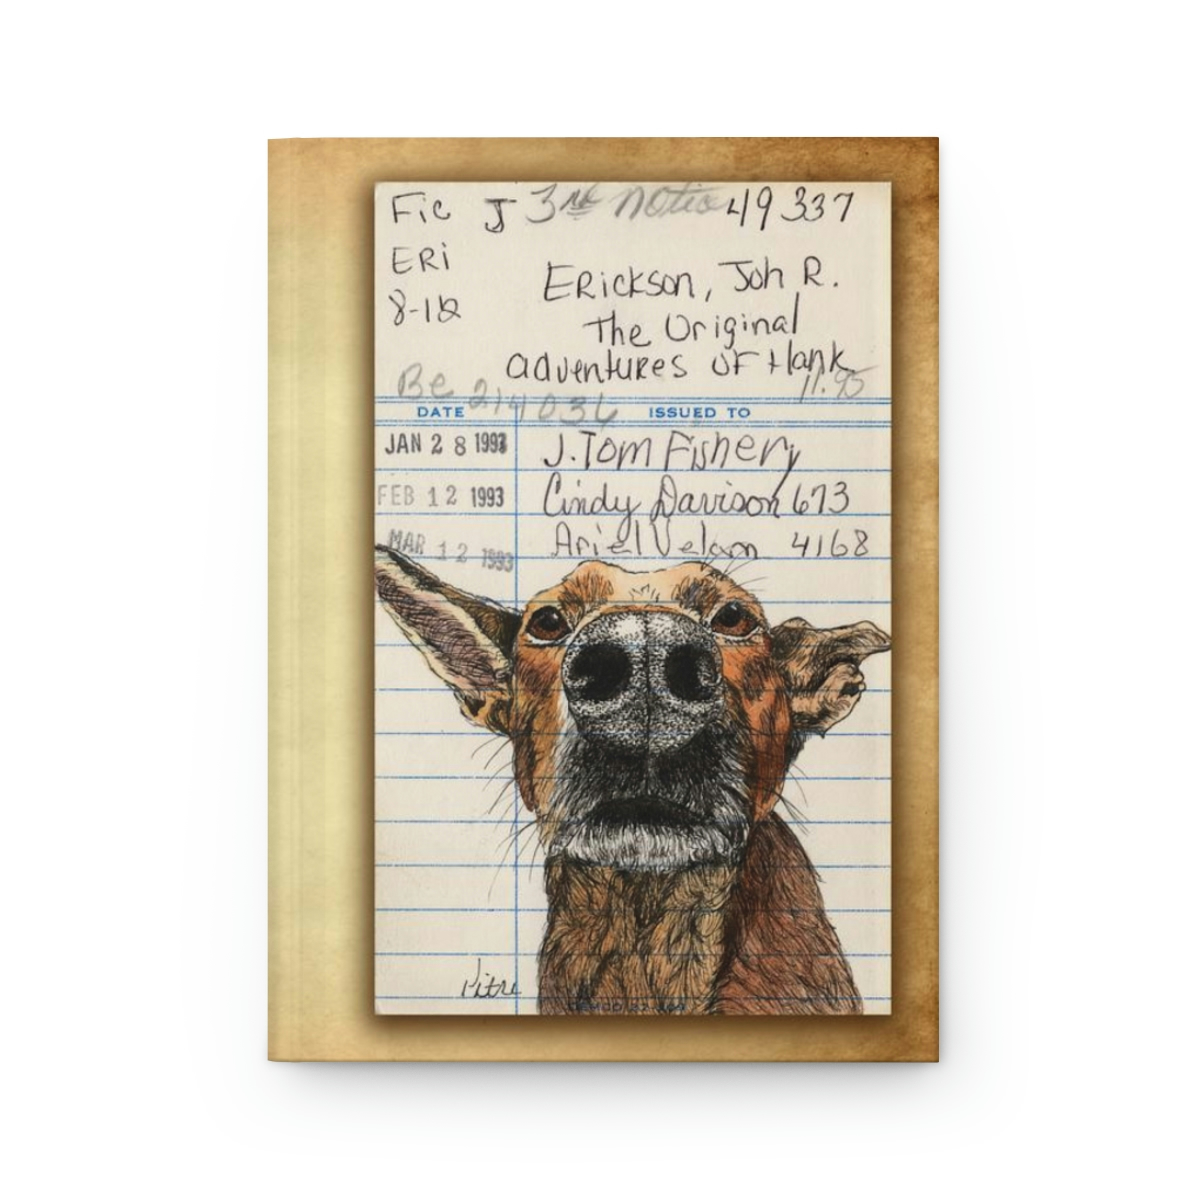 Fic J 3rd notice 49337
ERi
8-12
Erickson, Joh R.
The Original
adventures of Hank
11.95
Be 214036
DATE ISSUED TO
JAN 28 1993 J. Tom Fishery
FEB 12 1993 Cindy Davison 673
MAR 12 1993 Ariel 4168
Pitre